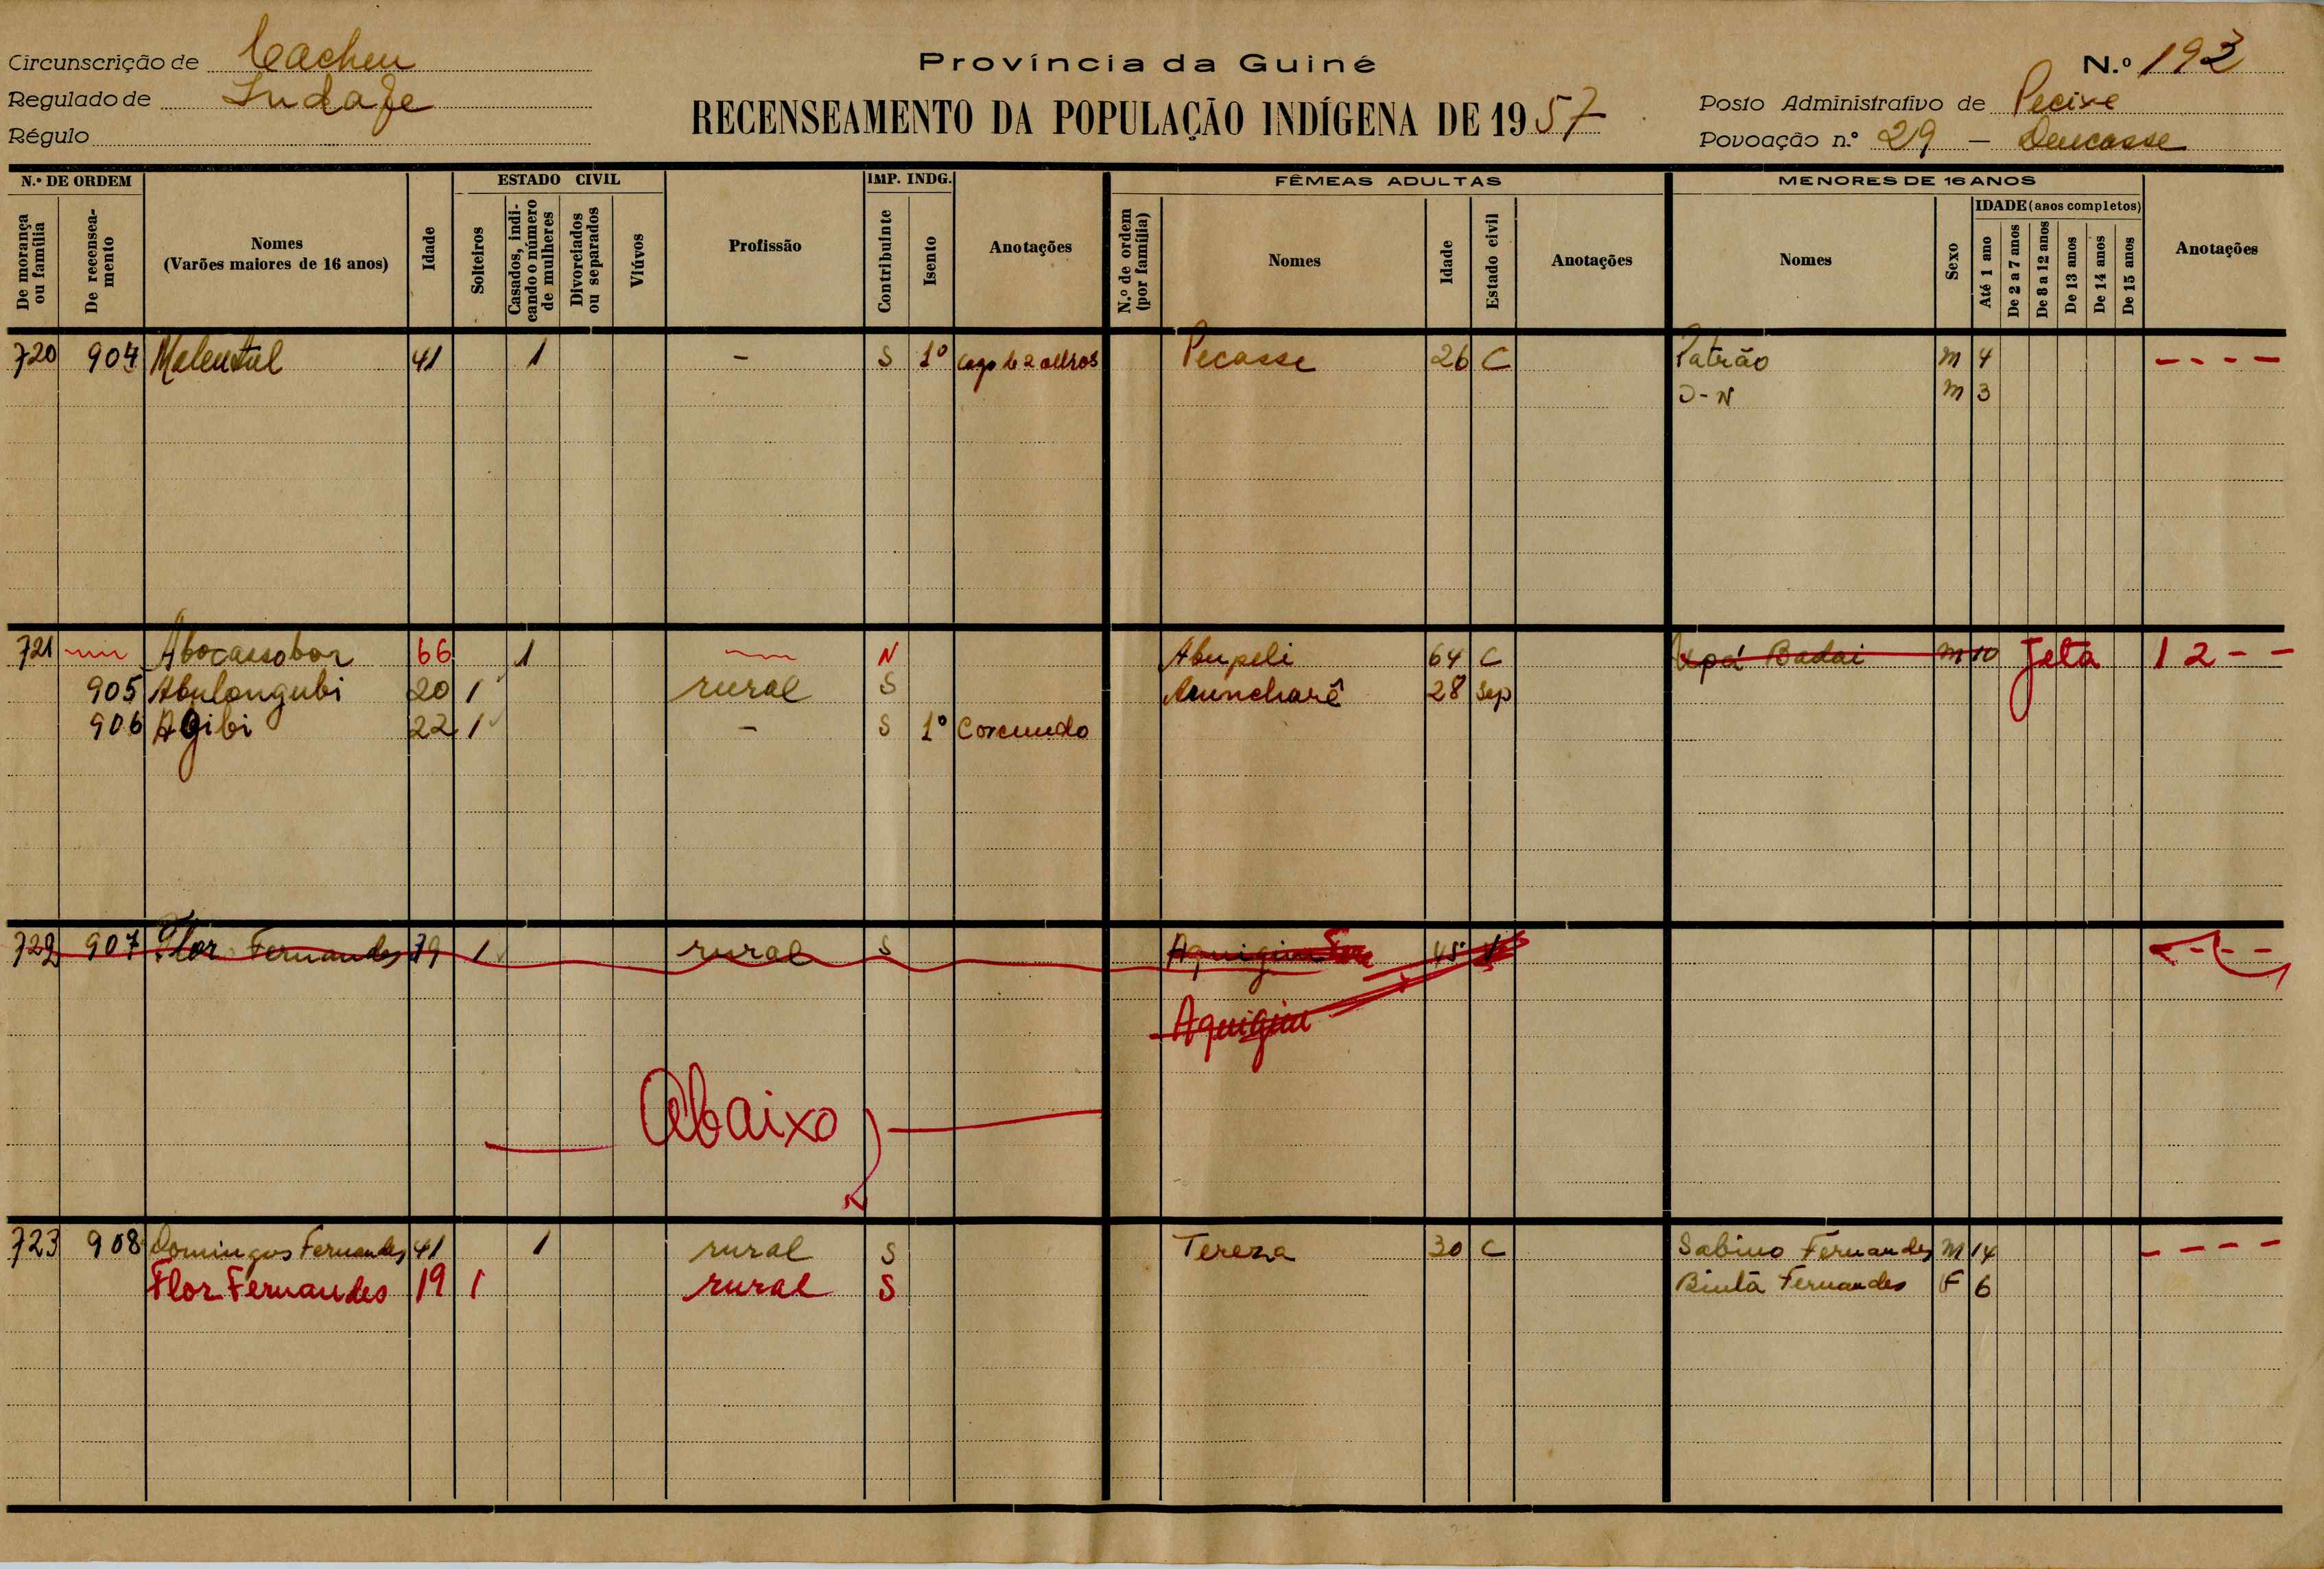 Província da Guiné
N.º 193
Circunscrição de Cacheu
Regulado de Indafe
Régulo
RECENSEAMENTO DA POPULAÇÃO INDÍGENA DE 1957
Posto Administrativo de Pecixe
Povoação n.º 29 —
N.º DE ORDEM
De morança ou família
De recensea-mento
Nomes
(Varões maiores de 16 anos)
Idade
ESTADO CIVIL
Solteiros
Casados, indi-cando o número de mulheres
Divorciados ou separados
Viúvos
Profissão
IMP. INDG.
Contribuinte
Isento
Anotações
FÊMEAS ADULTAS
N.º de ordem (por família)
Nomes
Idade
Estado civil
Anotações
MENORES DE 16 ANOS
Nomes
Sexo
IDADE (anos completos)
Até 1 ano
De 2 a 7 anos
De 8 a 12 anos
De 13 anos
De 14 anos
De 15 anos
Anotações
720 904 Malentul 41 1 - S 1º Cego de 2 olhos Pecasse 26 C Patrão M 4 - - - -
D-N M 3
721 Abocassobor 66 1 N Abupeli 64 C Badai M 10 Jeta 1 2 - -
905 Abulongubi 20 1 rural S 28 Sep
906 Agibi 22 1 - S 1º Corcundo
722 907 Flor Fernandes 19 1 rural S Aquigim 45
Aquigim
Abaixo
723 908 Domingos Fernandes 41 1 rural S Tereza 30 C Sabino Fernandes M 14 - - - -
Flor Fernandes 19 1 rural S Bintã Fernandes F 6